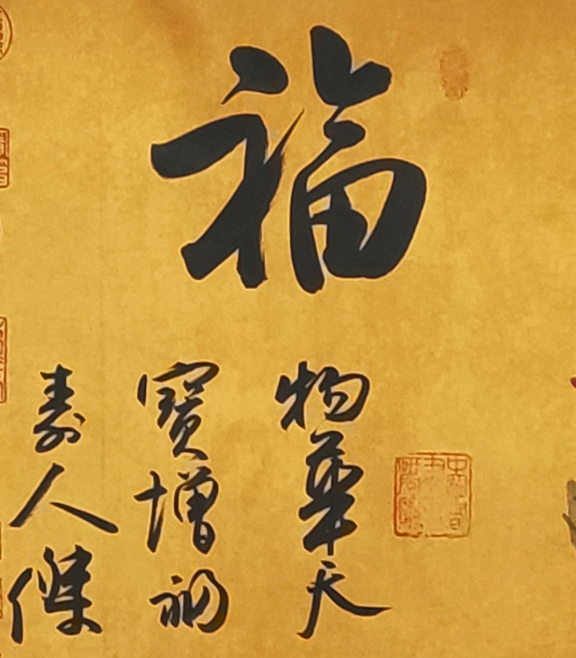 福
物華天
寶增福
壽人傑